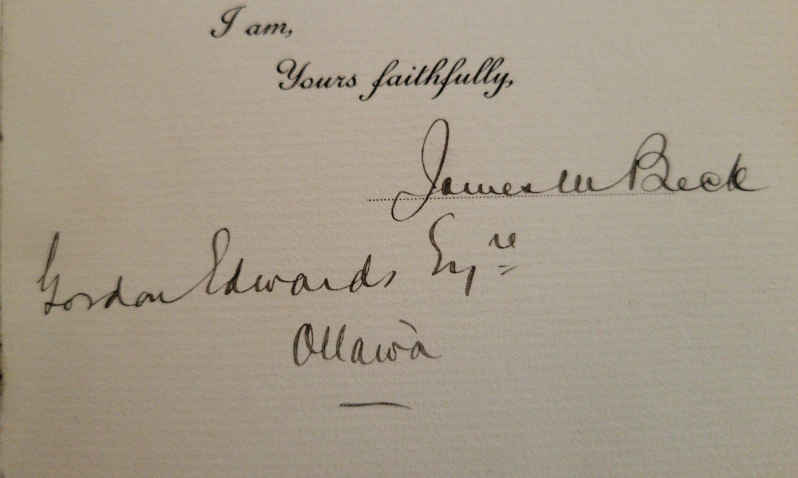 I am,
Yours faithfully,
James M Beck
Gordon Edwards Esqre
Ottawa